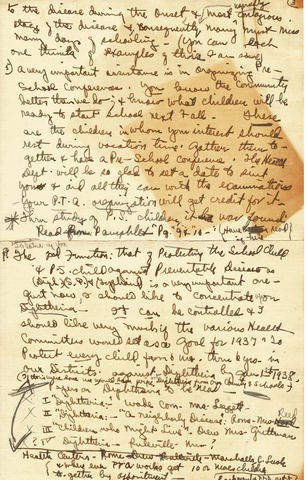 to the disease during the onset & most contagious
stage of the disease & consequently many must miss
many days of school. You can each
one think of examples of this I am sure
5) A very important assistance is in organizing Pre-
School Conferences. You know the Community
better than we do; & know what children will be
ready to start School next Fall. These
are the children in whom your interest should
rest during vacation time. Gather them to-
gether & have a Pre-School Conference. The Health
Dept. will be so glad to set a date to suit
you & aid all they can with the examinations
Your P.T.A. organization will get credit for it.
* Thru study of P.S. children it was found
Read from Pamphlet Pg. 9 & 10
The 2nd Function: that of Protecting the School Child
& P.S. child against Preventable Diseases as
is a very important one.
Just now, I should like to concentrate upon
Diphtheria. It can be controlled & I
should like very much if the various Health
Committees would set as a Goal for 1937 "To
Protect every child from 6 mos. thru 6 yrs. in
our Districts against Diphtheria by Jan 1st 1938
papers on Diphtheria
I "Diphtheria"
II "Diphtheria" "a neighborly Disease" Rome - Mrs. Reed
III "Children who might Live" Drew Mrs.
? IV Diphtheria -
Health Centers - Rome Drew
& they ever P.T.A. works get 10 or more children
together by appointment